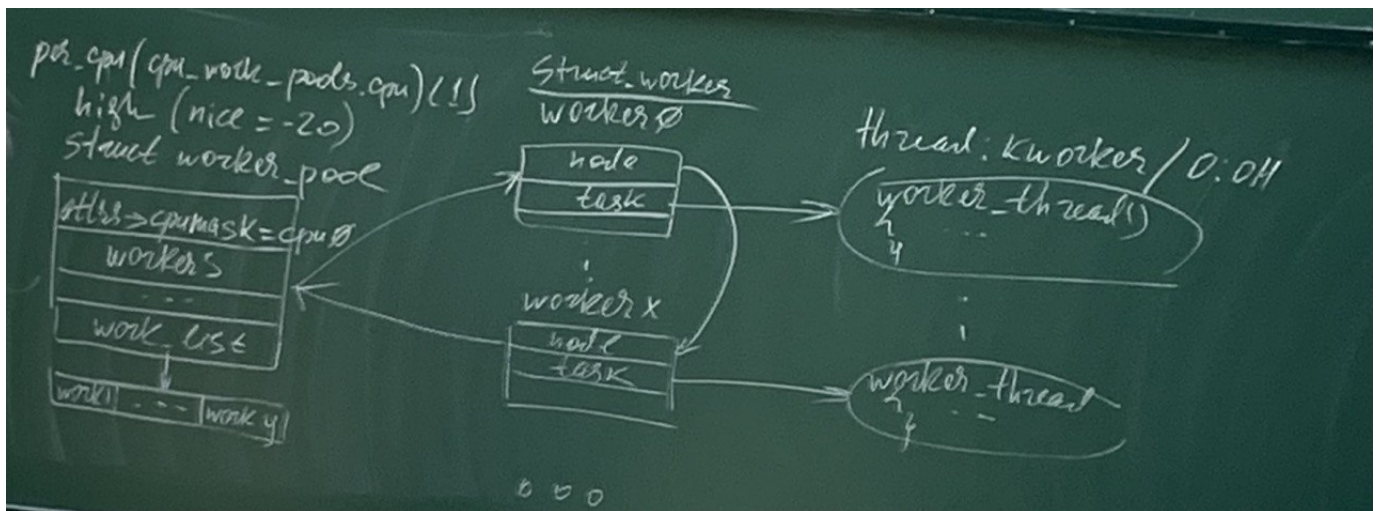 per_cpu(cpu_work_pools.cpu)[1]
high (nice = -20)
struct worker_pool
attrs->cpumask=cpuø
workers
...
work_list
work1 --- work y
struct_worker
workerø
node
task
worker x
node
task
thread: kworker/0:0H
worker_thread()
{ ...
}
worker_thread
{ ...
}